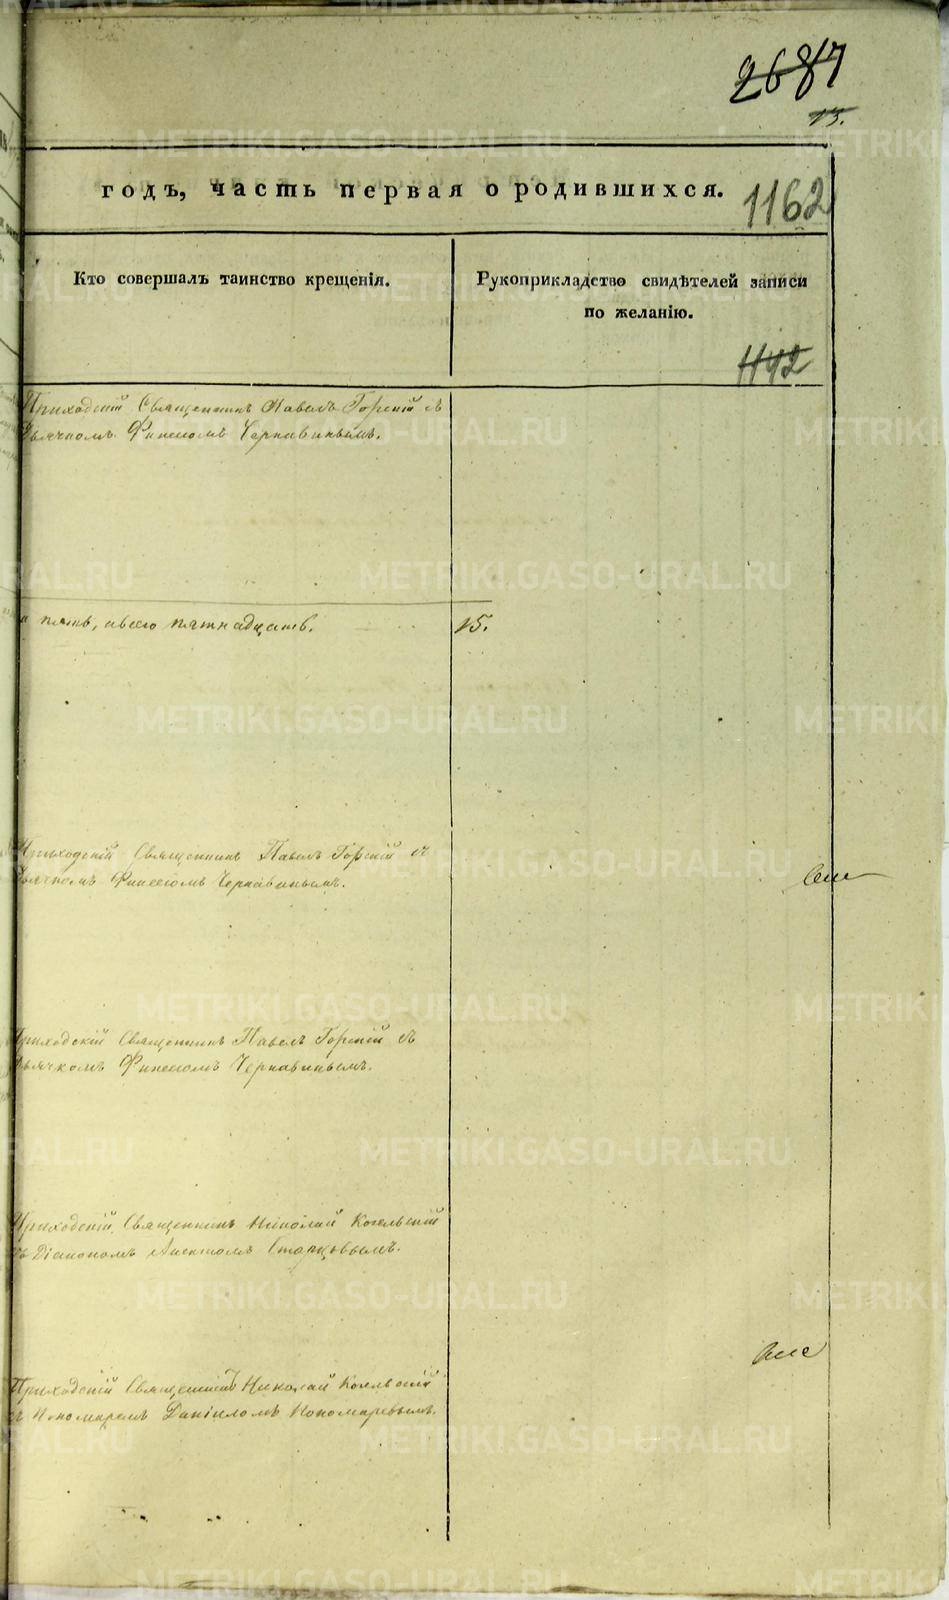 2687
15.
годъ, часть первая о родившихся.
1162
Кто совершалъ таинство крещенія.
Рукоприкладство свидѣтелей записи
по желанію.
1142
Приходскій Священникъ Павелъ Горскій съ
Дьячкомъ Финеесомъ Чернавинымъ.
и пять, а всего пятнадцать.
15.
Приходскій Священникъ Павелъ Горскій съ
Дьячкомъ Финеесомъ Чернавинымъ.
Приходскій Священникъ Павелъ Горскій съ
Дьячкомъ Финеесомъ Чернавинымъ.
Приходскій Священникъ Николай Когельскій
съ Діакономъ Старцовымъ.
Приходскій Священникъ Николай Когельскій
съ Пономаремъ Даніиломъ Пономаревымъ.
METRIKI.GASO-URAL.RU